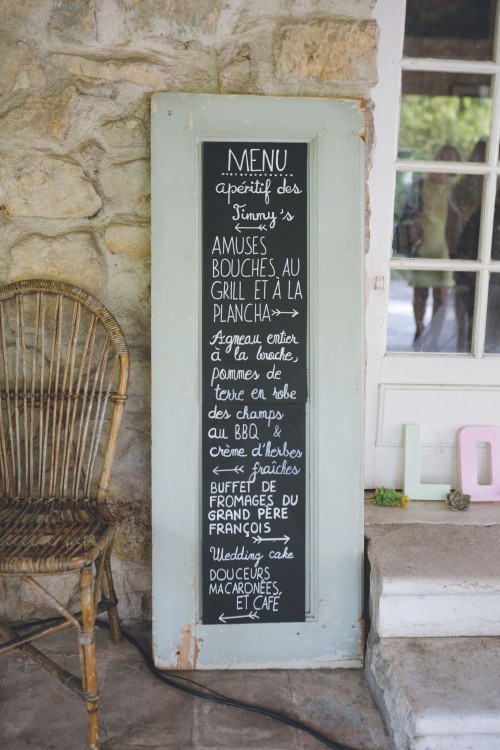 MENU
apéritif des
Timmy's
AMUSES
BOUCHES, AU
GRILL ET À LA
PLANCHA
Agneau entier
à la broche,
pommes de
terre en robe
des champs
au BBQ &
crème d'herbes
fraîches
BUFFET DE
FROMAGES DU
GRAND PÈRE
FRANÇOIS
Wedding cake
DOUCEURS
MACARONÉES,
ET CAFÉ
LO